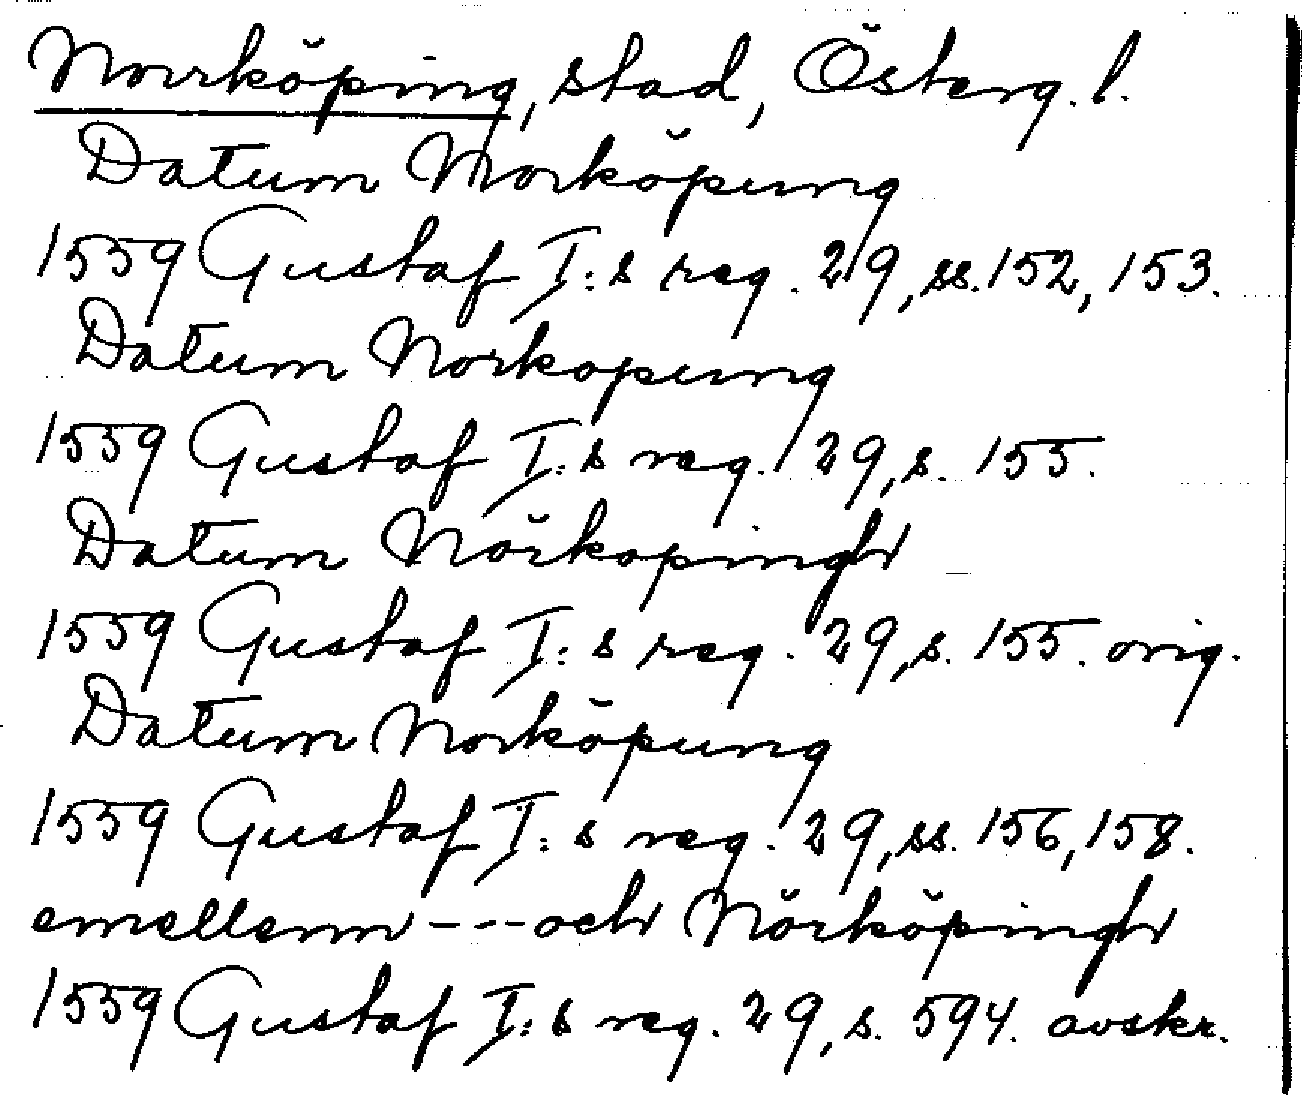 Norrköping, stad, Österg. l.
Datum Norköpung
1559 Gustaf I:s reg. 29, ss. 152, 153.
Datum Norkopung
1559 Gustaf I:s reg. 29, s. 155.
Datum Nörkopingh
1559 Gustaf I:s reg. 29, s. 155. orig.
Datum Norköpung
1559 Gustaf I:s reg. 29, ss. 156, 158.
emellenn --- och Nörköpingh
1559 Gustaf I:s reg. 29, s. 594. avskr.